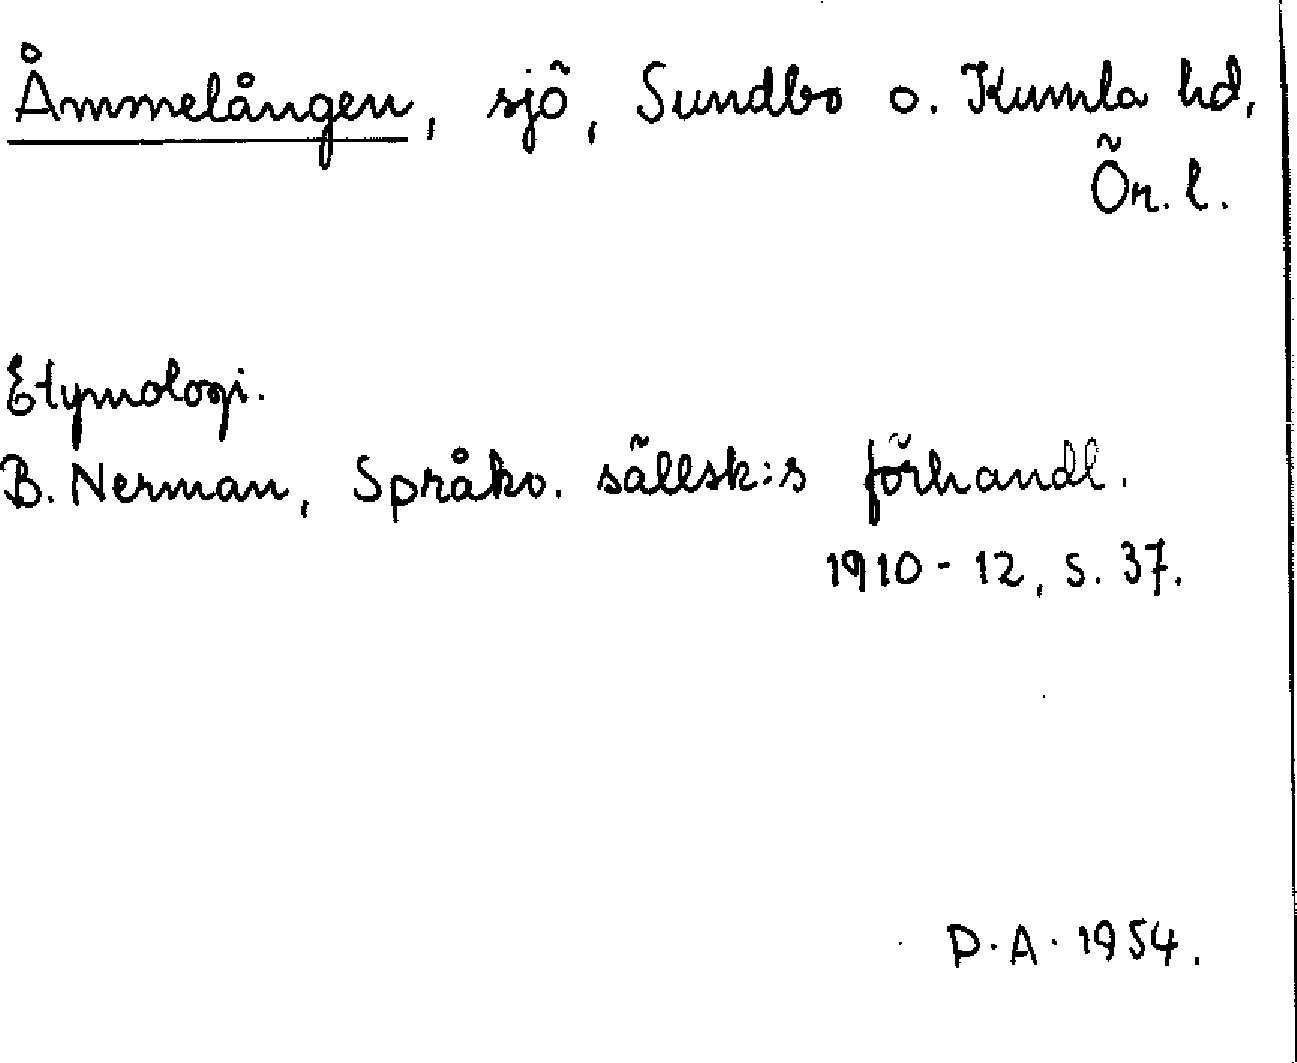 Åmmelången, sjö, Sundbo o. Kumla hd,
Ör. l.
Etymologi.
B. Nerman, Språkv. sällsk:s förhandl.
1910-12, s. 37.
D.A. 1954.